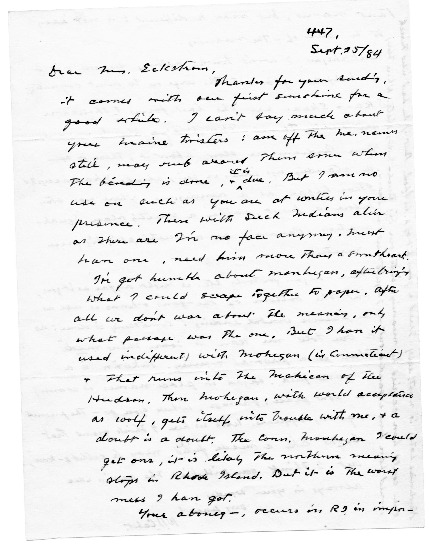 447,
Sept. 25/34
Dear Mrs. Eckstrom,
Thanks for your sending,
it comes with our first sunshine for a
good while. I can't say much about
your Maine twisters: am off the Me. names
still, may rub around them some when
the binding is done, + it is due. But I am no
use on such as you are at works in your
presence. There with such Indians alive
as there are I'm no face anyway. Must
have one, need him more than a sweetheart.
I've got humble about Monhegan, after bringing
what I could scrape together to paper. After
all we don't war about the meaning, only
what passage was the one. But I have it
used indifferent) with Mohegan (in Connecticut)
+ that runs into the Mahican of the
Hudson. Then Mohegan, with world acceptance
as wolf, gets itself into trouble with me, + a
doubt is a doubt. The Conn. Monhegan I could
get one, it is likely the northern meaning
stops in Rhode Island. But it is the worst
mess I have got.
Your aboneg-, occurs in RI in impor-